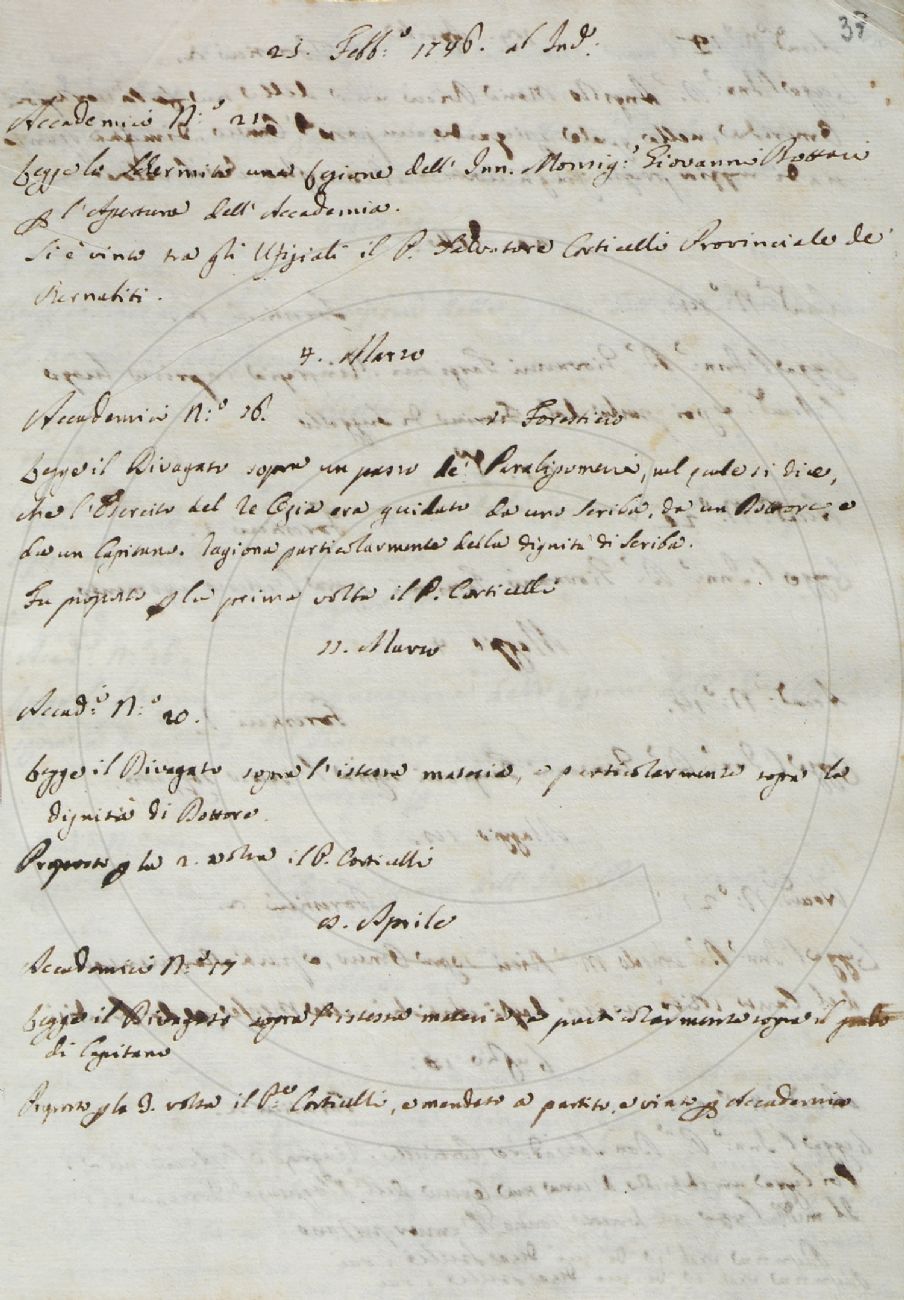 37
25. Febb:º 1746. ab Ind:
Accademici N:º 21
Legge lo Schermito una Lezione dell' Inn. Monsig:r Giovanni Bottari
p l'Apertura dell'Accademia.
Si è vinto tra gli Ufiziali il P. Salvatore Corticelli Provinciale de'
Bernabiti.
4. Marzo
Accademici N:º 16. 1 Forestiero
Legge il Divagato sopra un passo de' Paralipomeni, nel quale si dice,
che l'Esercito del Re Ozia era guidato da uno Scriba, da un Dottore, e
da un Capitano. Ragiona particolarmente della dignità di Scriba.
Fu proposto p la prima volta il P. Corticelli
11. Marzo
Accad:i N:º 20.
Legge il Divagato sopra l'istessa materia, e particolarmente sopra la
dignità di Dottore.
Proposto p la 2. volta il P. Corticelli
Aprile
Accademici N:º 17
Legge il Divagato sopra l'istessa materia, e particolarmente sopra il grado
di Capitano
Proposto p la 3. volta il P:re Corticelli, e mandato a partito, e vinto p Accademico